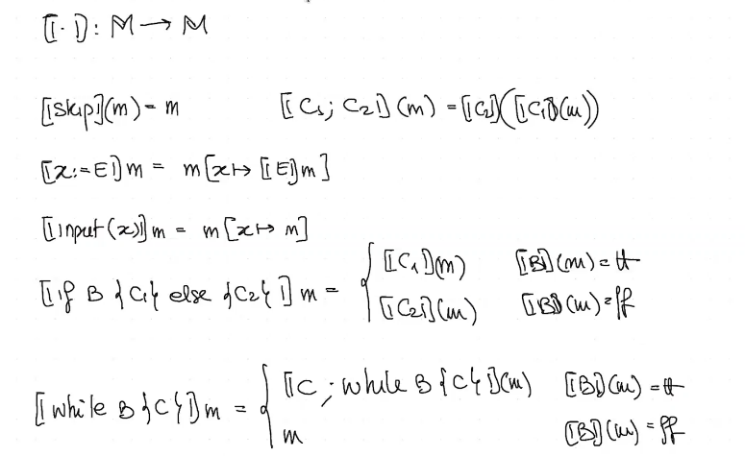 ⟦·⟧: M → M
⟦skip⟧(m) = m ⟦C₁; C₂⟧(m) = ⟦C₂⟧(⟦C₁⟧(m))
⟦x:=E⟧m = m[x↦⟦E⟧m]
⟦input(x)⟧m = m[x↦n]
⟦if B {C₁} else {C₂}⟧m = { ⟦C₁⟧(m) ⟦B⟧(m) = tt
⟦C₂⟧(m) ⟦B⟧(m) = ff
⟦while B {C}⟧m = { ⟦C; while B {C}⟧(m) ⟦B⟧(m) = tt
m ⟦B⟧(m) = ff